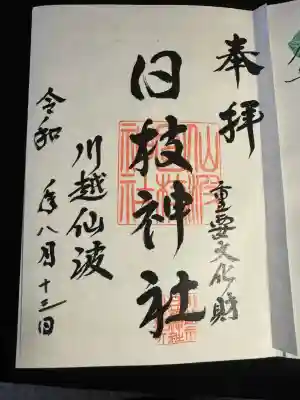 奉拝
重要文化財
日枝神社
川越仙波
令和 年八月十三日